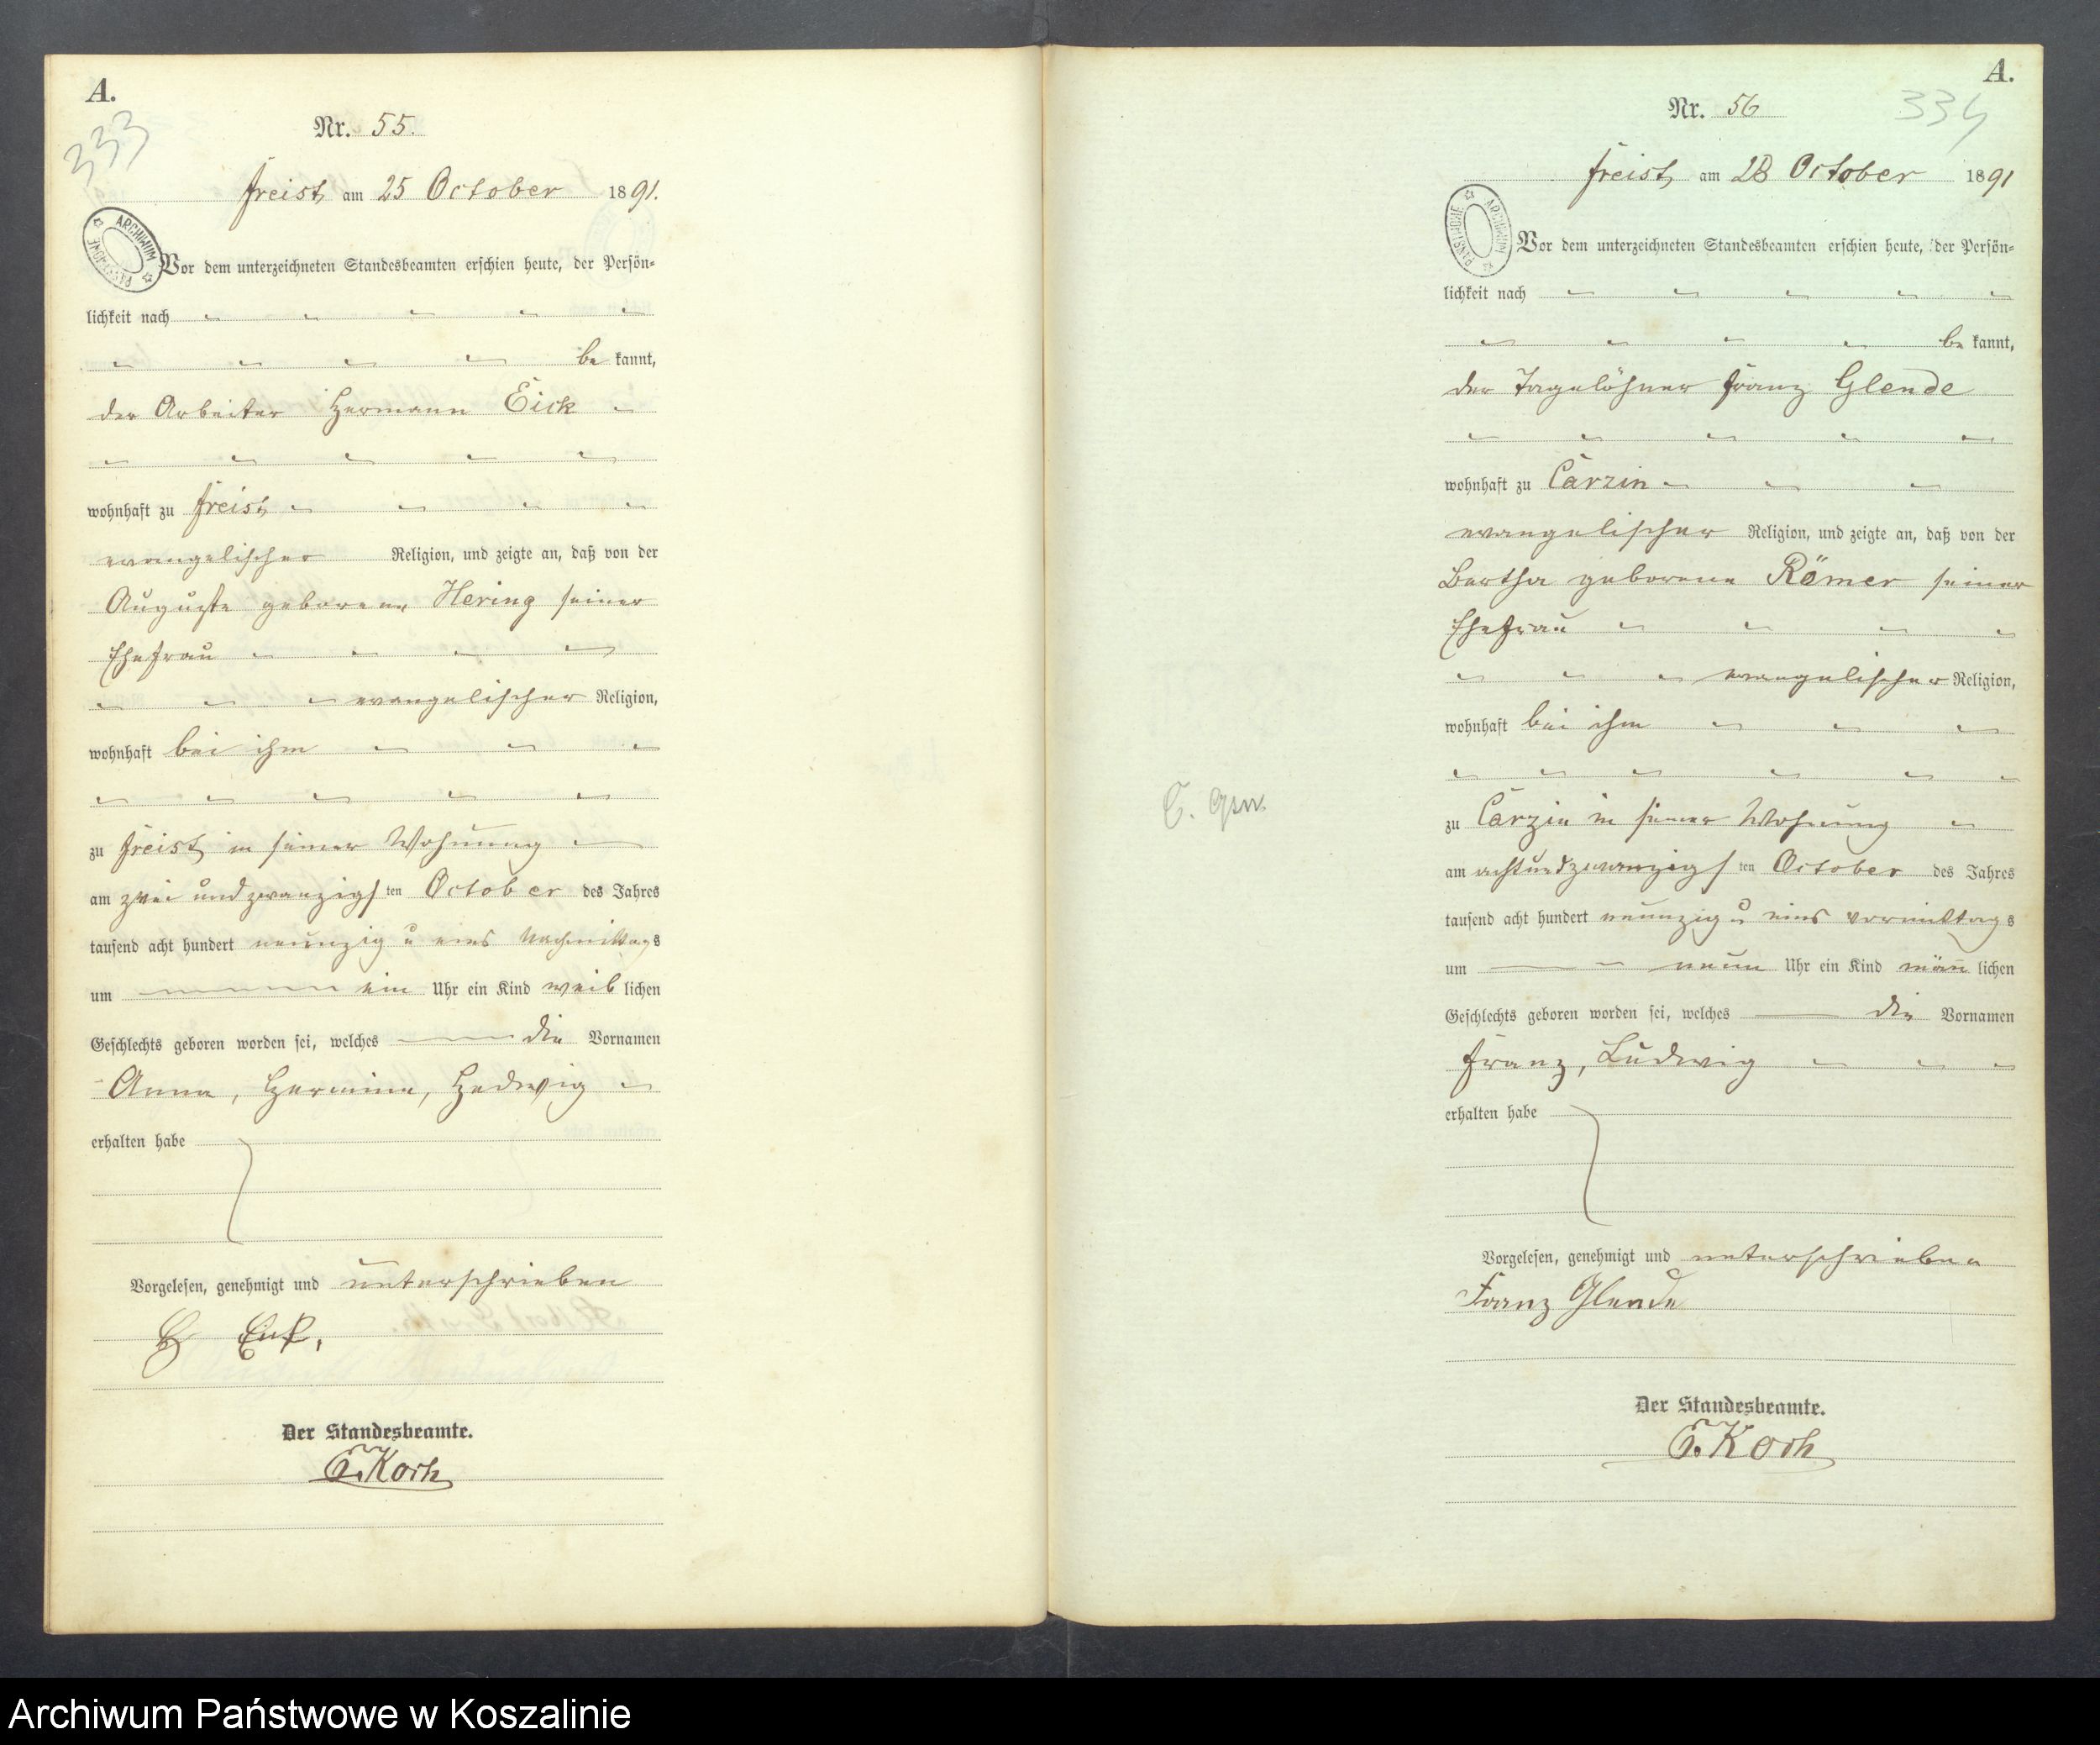 A.
333
Nr. 55.
Freist, am 25 October 1891.
ARCHIWUM PAŃSTWOWE
Vor dem unterzeichneten Standesbeamten erschien heute, der Persön-
lichkeit nach
be kannt,
der Arbeiter Hermann Eick
wohnhaft zu Freist
evangelischer Religion, und zeigte an, daß von der
Auguste geborenen Hering seiner
Ehefrau
evangelischer Religion,
wohnhaft bei ihm
zu Freist in seiner Wohnung
am zwei und zwanzigsten October des Jahres
tausend acht hundert neunzig u eins Nachmittags
um ein Uhr ein Kind weiblichen
Geschlechts geboren worden sei, welches die Vornamen
Anna, Hermine, Hedwig
erhalten habe
Vorgelesen, genehmigt und unterschrieben
H Eick,
Der Standesbeamte.
E. Koch
A.
334
Nr. 56
Freist, am 28 October 1891
ARCHIWUM PAŃSTWOWE
Vor dem unterzeichneten Standesbeamten erschien heute, der Persön-
lichkeit nach
be kannt,
der Tagelöhner Franz Glende
wohnhaft zu Carzin
evangelischer Religion, und zeigte an, daß von der
Bertha geborene Römer seiner
Ehefrau
evangelischer Religion,
wohnhaft bei ihm
zu Carzin in seiner Wohnung
am achtundzwanzigsten October des Jahres
tausend acht hundert neunzig u eins vormittags
um neun Uhr ein Kind männlichen
Geschlechts geboren worden sei, welches die Vornamen
Franz, Ludwig
erhalten habe
Vorgelesen, genehmigt und unterschrieben
Franz Glende
Der Standesbeamte.
E. Koch
Archiwum Państwowe w Koszalinie